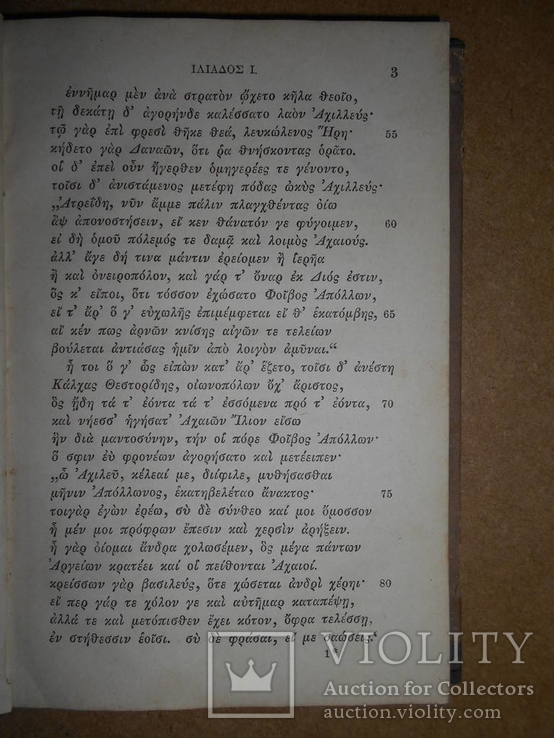 ΙΛΙΑΔΟΣ Ι. 3
ἐννῆμαρ μὲν ἀνὰ στρατὸν ᾤχετο κῆλα θεοῖο,
τῇ δεκάτῃ δ' ἀγορήνδε καλέσσατο λαὸν Ἀχιλλεύς·
τῷ γὰρ ἐπὶ φρεσὶ θῆκε θεά, λευκώλενος Ἥρη· 55
κήδετο γὰρ Δαναῶν, ὅτι ῥα θνήσκοντας ὁρᾶτο.
οἱ δ' ἐπεὶ οὖν ἤγερθεν ὁμηγερέες τε γένοντο,
τοῖσι δ' ἀνιστάμενος μετέφη πόδας ὠκὺς Ἀχιλλεύς·
„Ἀτρεΐδη, νῦν ἄμμε πάλιν πλαγχθέντας ὀίω
ἂψ ἀπονοστήσειν, εἴ κεν θάνατόν γε φύγοιμεν, 60
εἰ δὴ ὁμοῦ πόλεμός τε δαμᾷ καὶ λοιμὸς Ἀχαιούς.
ἀλλ' ἄγε δή τινα μάντιν ἐρείομεν ἢ ἱερῆα
ἢ καὶ ὀνειροπόλον, καὶ γάρ τ' ὄναρ ἐκ Διός ἐστιν,
ὅς κ' εἴποι, ὅτι τόσσον ἐχώσατο Φοῖβος Ἀπόλλων,
εἴ τ' ἄρ' ὅ γ' εὐχωλῆς ἐπιμέμφεται εἴ θ' ἑκατόμβης, 65
αἴ κέν πως ἀρνῶν κνίσης αἰγῶν τε τελείων
βούλεται ἀντιάσας ἡμῖν ἀπὸ λοιγὸν ἀμῦναι.“
ἦ τοι ὅ γ' ὣς εἰπὼν κατ' ἄρ' ἕζετο, τοῖσι δ' ἀνέστη
Κάλχας Θεστορίδης, οἰωνοπόλων ὄχ' ἄριστος,
ὃς ᾔδη τά τ' ἐόντα τά τ' ἐσσόμενα πρό τ' ἐόντα, 70
καὶ νήεσσ' ἡγήσατ' Ἀχαιῶν Ἴλιον εἴσω
ἣν διὰ μαντοσύνην, τήν οἱ πόρε Φοῖβος Ἀπόλλων·
ὅ σφιν ἐὺ φρονέων ἀγορήσατο καὶ μετέειπεν·
„ὦ Ἀχιλεῦ, κέλεαί με, διίφιλε, μυθήσασθαι
μῆνιν Ἀπόλλωνος, ἑκατηβελέταο ἄνακτος· 75
τοιγὰρ ἐγὼν ἐρέω, σὺ δὲ σύνθεο καί μοι ὄμοσσον
ἦ μέν μοι πρόφρων ἔπεσιν καὶ χερσὶν ἀρήξειν.
ἦ γὰρ ὀίομαι ἄνδρα χολωσέμεν, ὃς μέγα πάντων
Ἀργείων κρατέει καί οἱ πείθονται Ἀχαιοί.
κρείσσων γὰρ βασιλεύς, ὅτε χώσεται ἀνδρὶ χέρηι· 80
εἴ περ γάρ τε χόλον γε καὶ αὐτῆμαρ καταπέψῃ,
ἀλλά τε καὶ μετόπισθεν ἔχει κότον, ὄφρα τελέσσῃ,
ἐν στήθεσσιν ἑοῖσι. σὺ δὲ φράσαι, εἴ με σαώσεις.“
1*
VIOLITY
Auction for Collectors
auction.violity.com